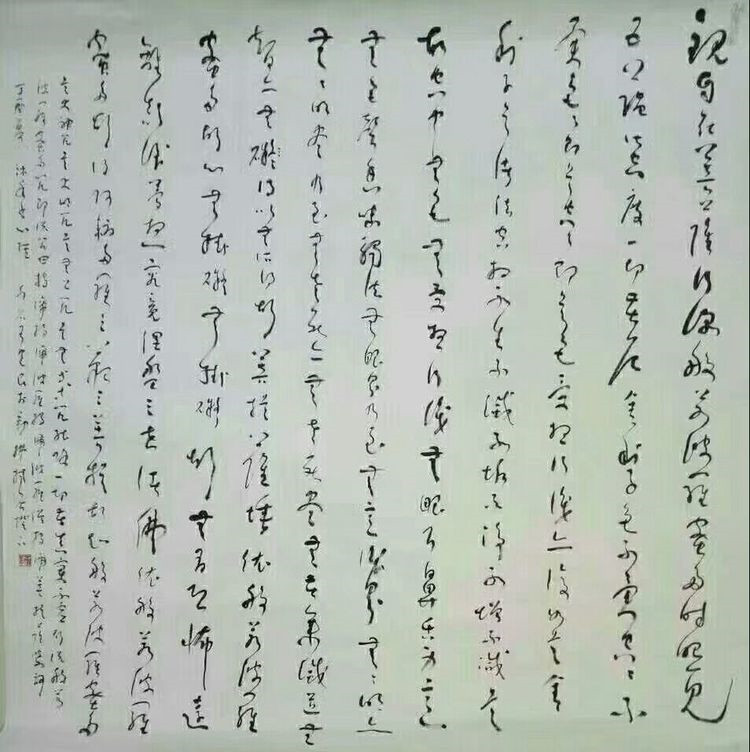 観自在菩薩行深般若波羅蜜多時照見
五蘊皆空度一切苦厄舍利子色不異空空不
異色色即是空空即是色受想行識亦復如是舍
利子是諸法空相不生不滅不垢不淨不增不減是
故空中無色無受想行識無眼耳鼻舌身意
無色聲香味觸法無眼界乃至無意識界無無明亦
無無明盡乃至無老死亦無老死盡無苦集滅道無
智亦無礙得以無所得故菩提薩埵依般若波羅
蜜多故心無掛礙無掛礙故無有恐怖遠
離顛倒夢想究竟涅槃三世諸佛依般若波羅
蜜多故得阿耨多羅三藐三菩提故知般若波羅蜜多
是大神咒是大明咒是無上咒是無等等咒能除一切苦真實不虛故說般若
波羅蜜多咒即說咒曰揭諦揭諦波羅揭諦波羅僧揭諦菩提薩婆訶
丁酉夏 沐手書心經